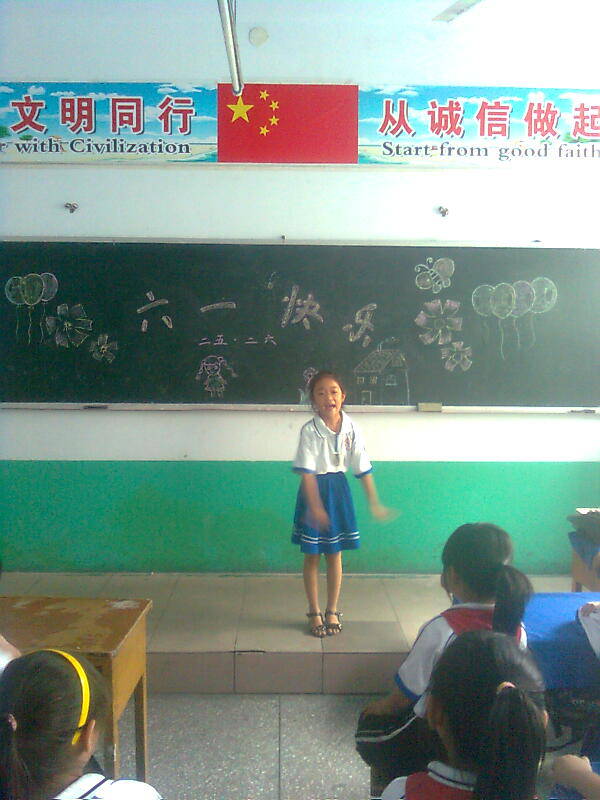 文明同行
r with Civilization
从诚信做起
Start from good faith
六一快乐
二五·二六